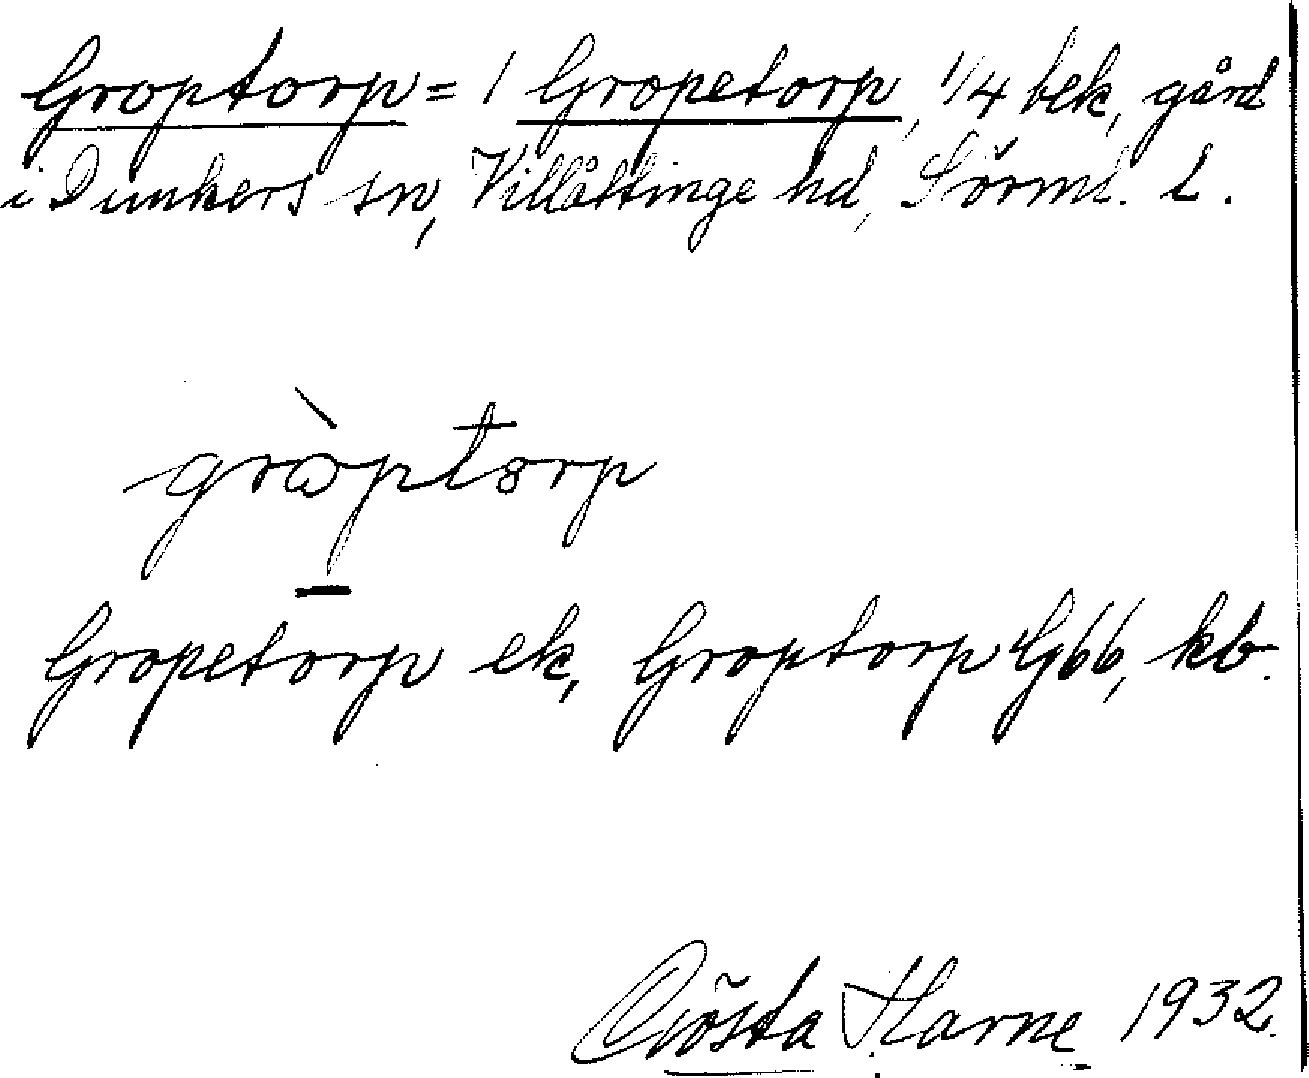 Groptorp = 1 Gropetorp, 1/4 bek, gård
i Dunkers sn, Villåttinge hd, Sörml. l.
gròptorp
Gropetorp ek, Groptorp G66, kb.
Gösta Harne 1932.